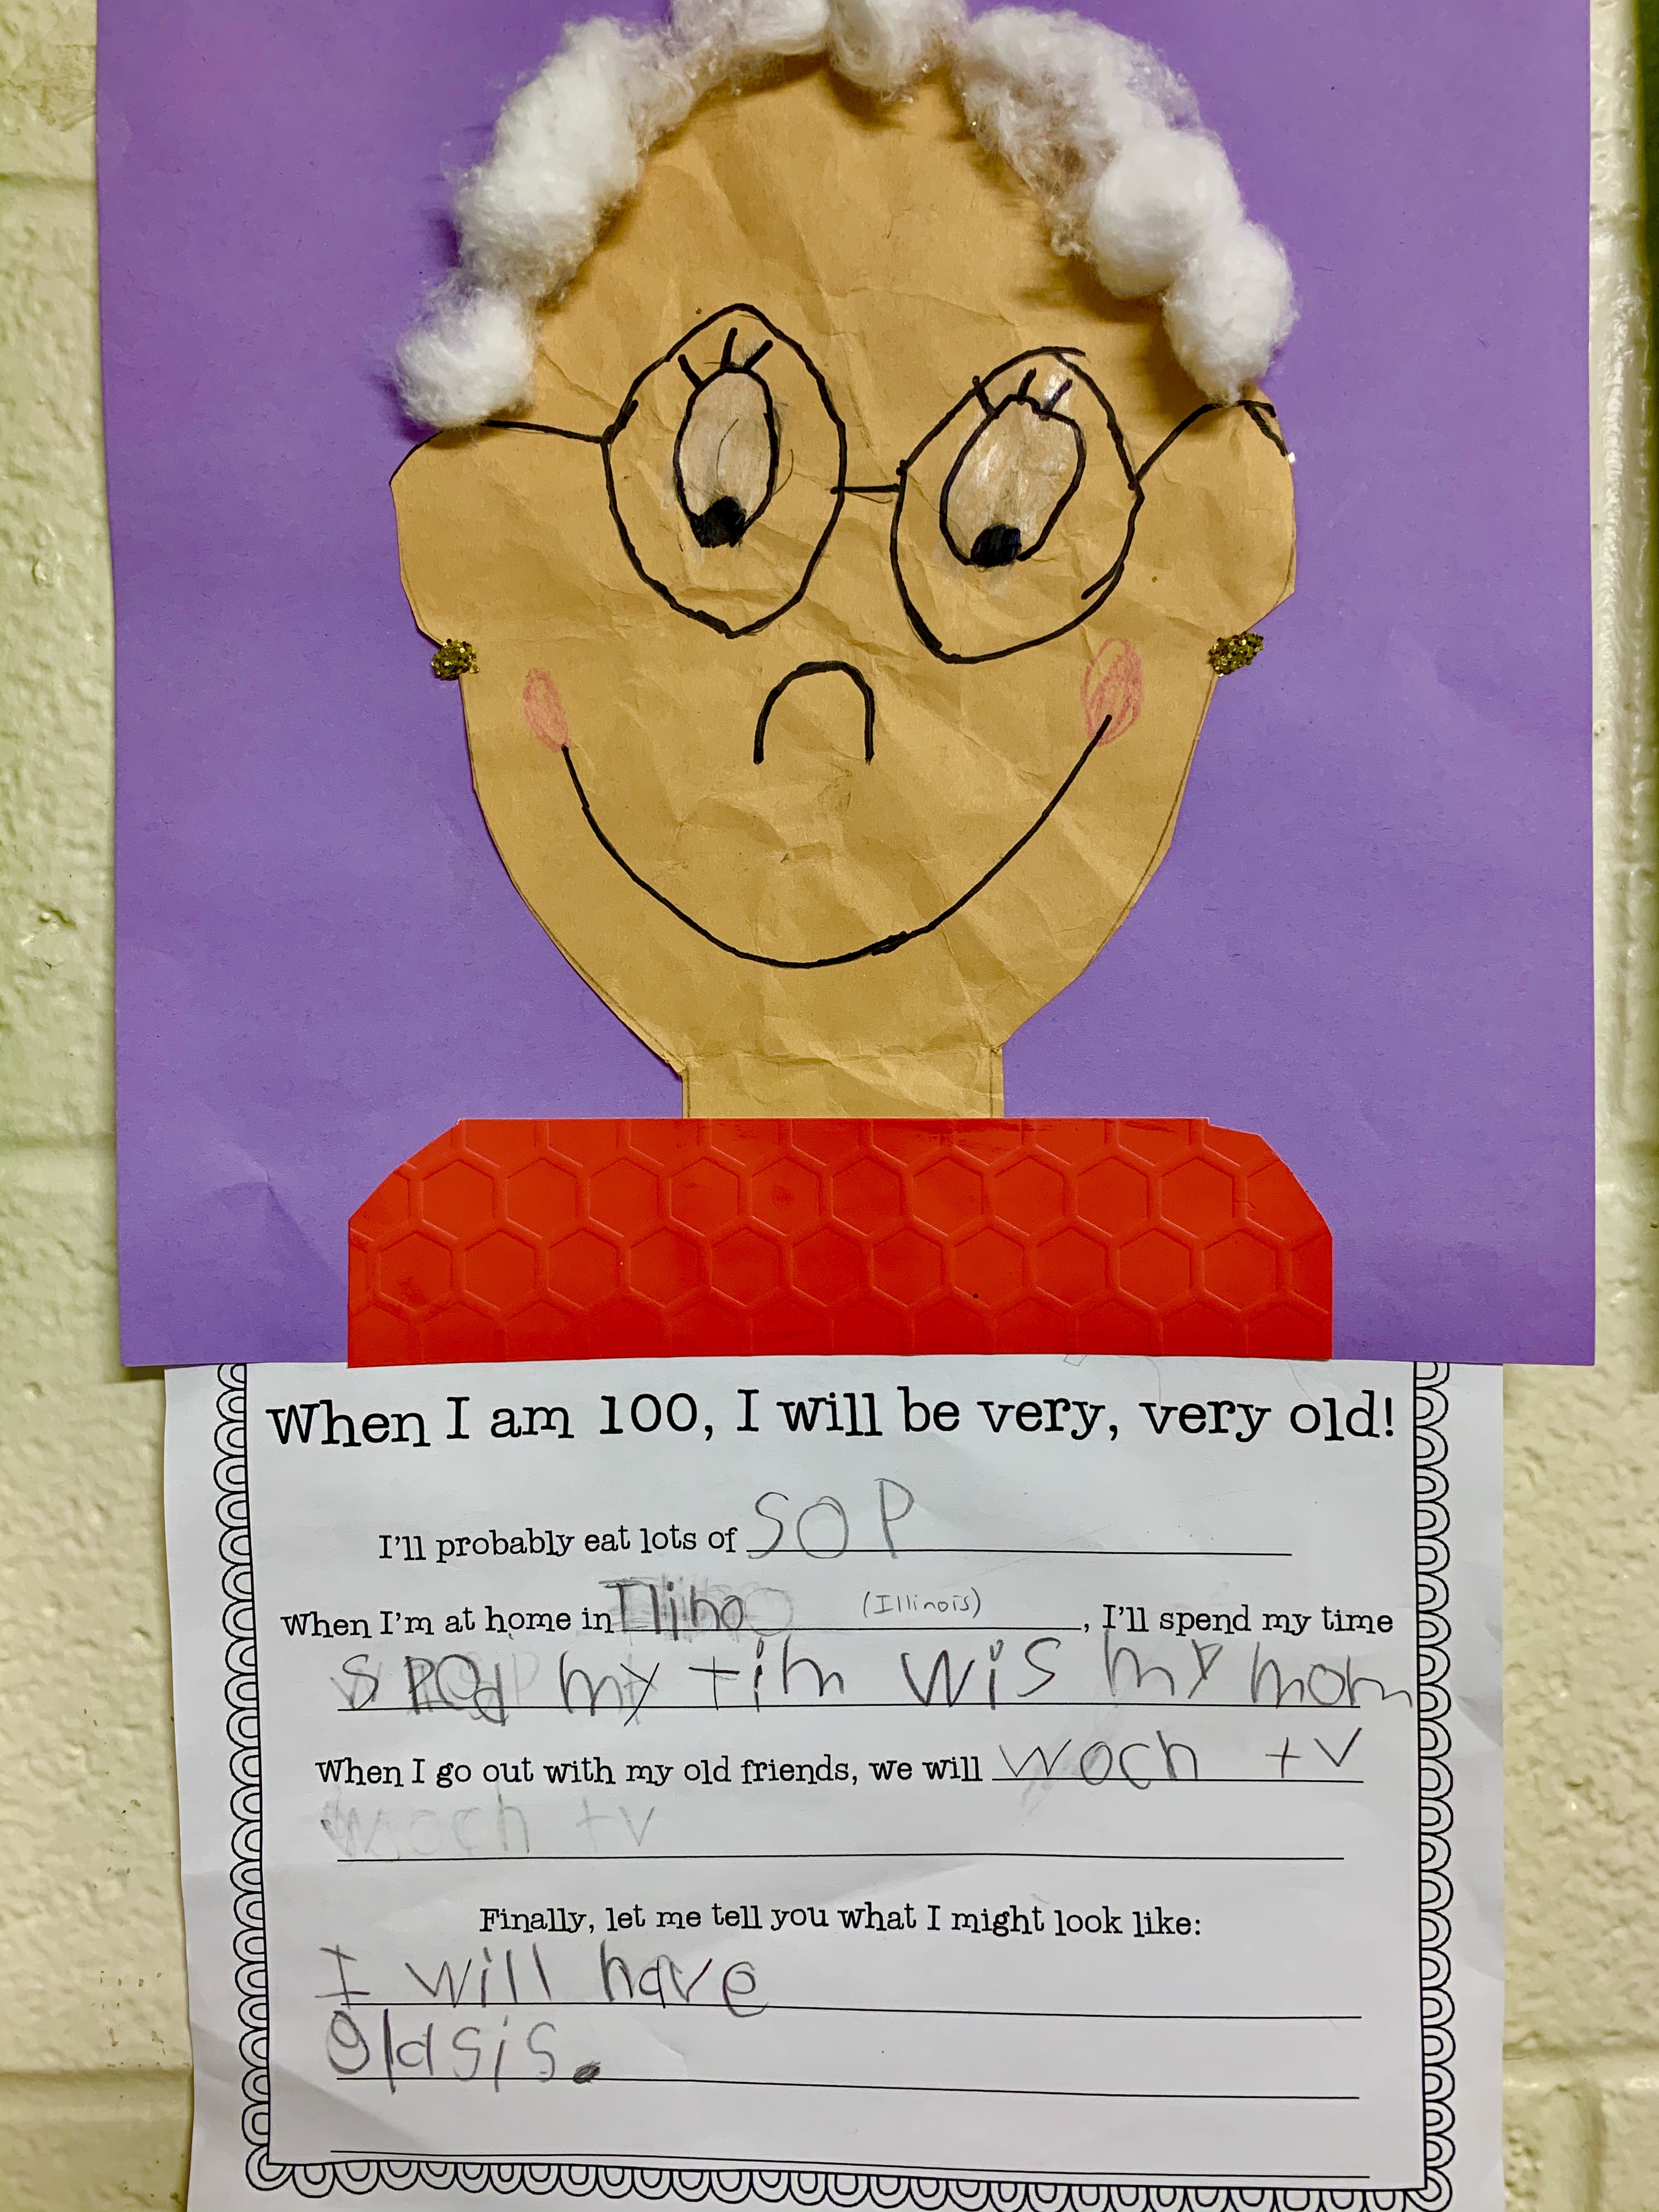 When I am 100, I will be very, very old!
I'll probably eat lots of SOP
When I'm at home in Ilino (Illinois), I'll spend my time
SPOd my tim wis my mom
When I go out with my old friends, we will woch tv
woch tv
Finally, let me tell you what I might look like:
I will have
glasis.